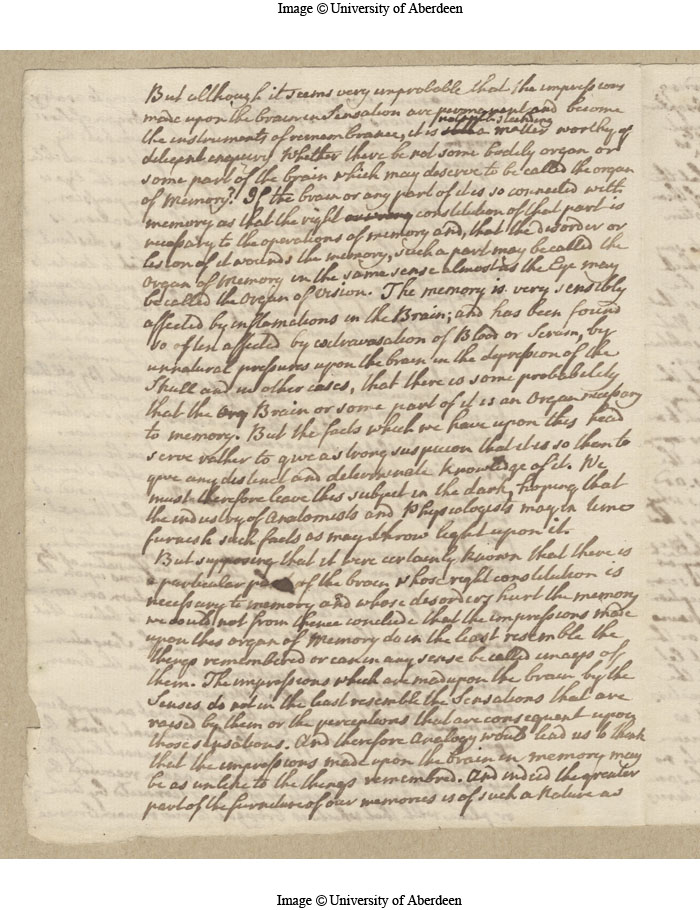 Image © University of Aberdeen
But although it seems very unprobable that the impressions
made upon the brain in Sensation are permanent and become
notwithstanding
the instruments of remembrance, it is a matter worthy of
diligent enquiry Whether there be not some bodily organ or
some part of the brain which may deserve to be called the organ
of Memory? If the brain or any part of it is so connected with
memory as that the right constitution of that part is
necessary to the operations of memory and, that the disorder or
lesion of it wounds the memory, such a part may be called the
organ of Memory in the same sense almost as the Eye may
be called the Organ of Vision. The memory is very sensibly
affected by inflamations in the Brain; and has been found
so often affected by extravasation of Blood or Serum, by
unnatural pressures upon the brain in the depression of the
Skull and in other cases, that there is some probability
that the Brain or some part of it is an Organ necessary
to memory. But the facts which we have upon this head
serve rather to give a strong suspicion that it is so than to
give any distinct and determinate knowledge of it. We
must therefore leave this subject in the dark, hoping that
the industry of Anatomists and Physiologists may in time
furnish such facts as may throw light upon it.
But supposing that it were certainly known that there is
a particular part of the brain whose right constitution is
necessary to memory and whose desorders hurt the memory
we could not from thence conclude that the impressions made
upon this organ of Memory do in the least resemble the
things remembered or can in any sense be called images of
them. The impressions which are made upon the brain by the
Senses do not in the least resemble the Sensations that are
raised by them or the perceptions that are consequent upon
those sensations. And therefore Analogy would lead us to think
that the impressions made upon the brain in memory may
be as unlike to the things remembred. And indeed the greater
part of the furniture of our memories is of such a Nature as
Image © University of Aberdeen